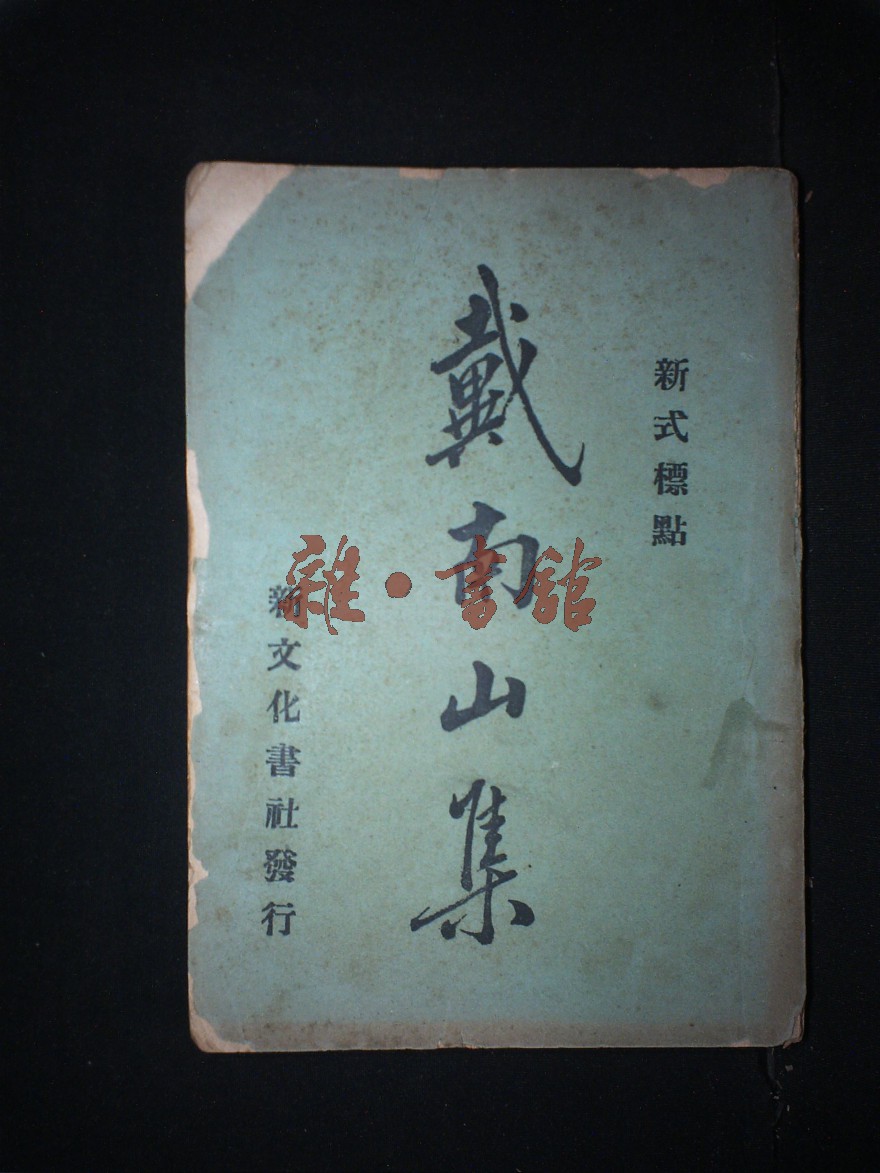 新式標點
戴南山集
新文化書社發行
雜·書館